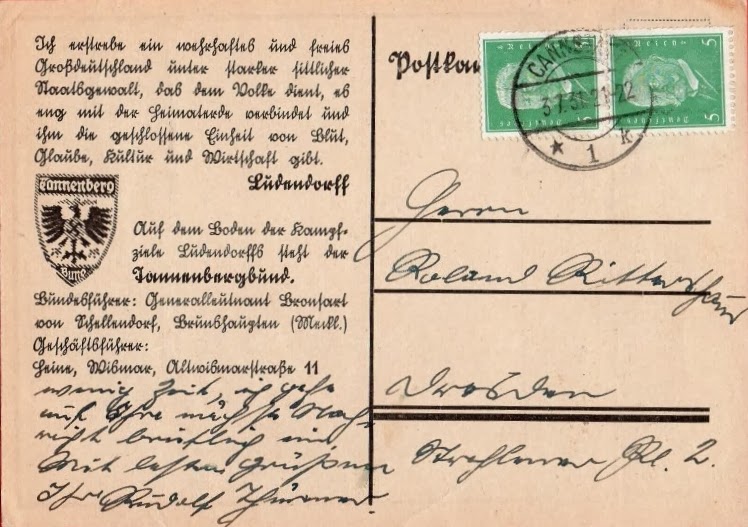 Ich erstrebe ein wehrhaftes und freies
Großdeutschland unter starker sittlicher
Staatsgewalt, das dem Volke dient, es
eng mit der Heimaterde verbindet und
ihm die geschlossene Einheit von Blut,
Glaube, Kultur und Wirtschaft gibt.
Ludendorff
Tannenberg
Bund
Auf dem Boden der Kampf-
ziele Ludendorffs steht der
Tannenbergbund.
Bundesführer: Generalleutnant Bronsart
von Schellendorf, Brunshaupten (Meckl.)
Geschäftsführer:
Heine, Wismar, Altwismarstraße 11
wenig Zeit, ich gehe
auf Ihre nächste Nach-
richt brieflich ein
Mit besten Grüßen
Ihr Rudolf
Postka
5
5
CANN
21-22
* 1 k
Herrn
Roland
Dresden
Pl. 2.